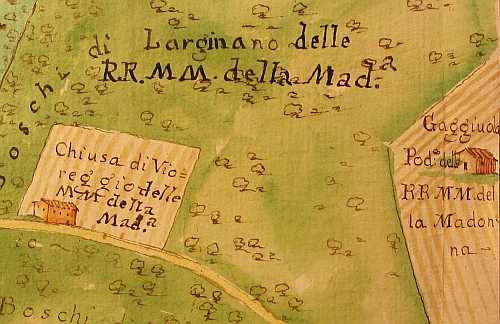 di Larginano delle
R.R. MM. della Mad.a
Boschi
Chiusa di Vio=
reggio delle
MM. della
Mad.a
Gaggiuola
Pod.e delle
RR. MM. del
la Madon=
na
Boschi